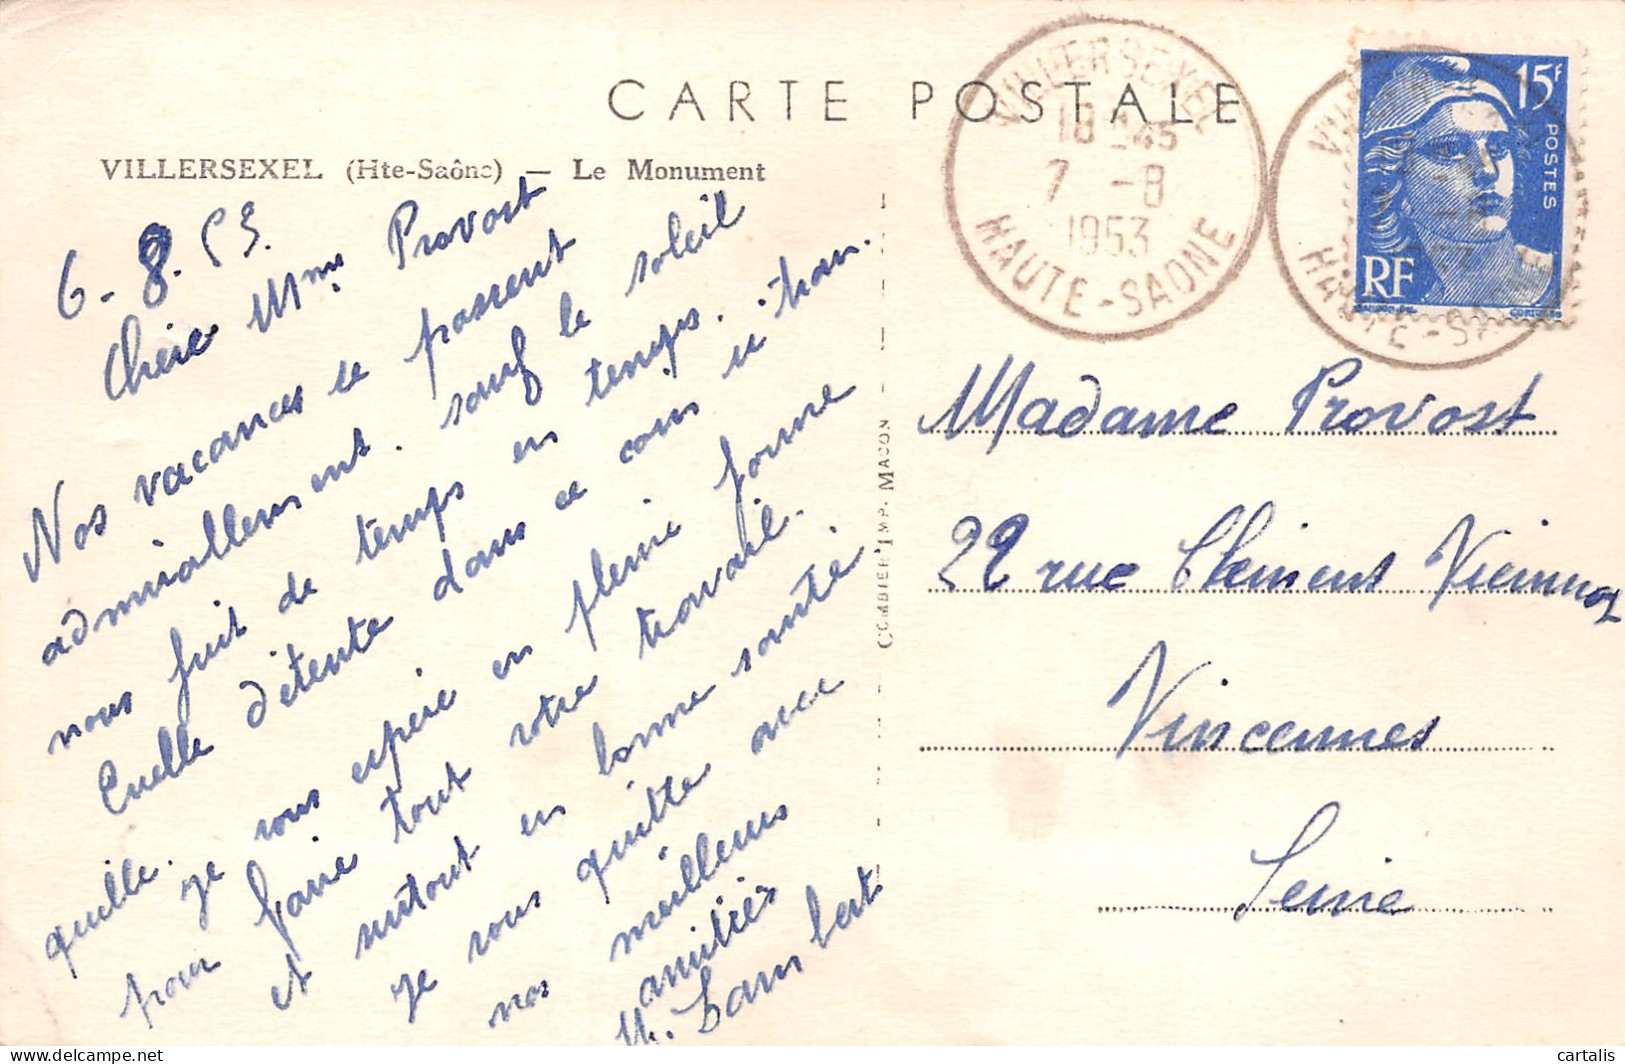 CARTE POSTALE
VILLERSEXEL (Hte-Saône) — Le Monument
6-8.53.
Chère Mme Provost
Nos vacances se passent
admirablement. sauf le soleil
nous fuit de temps en temps.
Quelle détente dans ce coin si tran.
quille.
je vous espère en pleine forme
pour faire tout votre travail.
et surtout en bonne santé.
je vous quitte avec
nos meilleurs
amitiés
M. Lambert
COMBIER IMP. MACON
VILLERSEXEL
18 H45
7 -8
1953
HAUTE-SAONE
15F
POSTES
RF
GANDON DEL.
CORTOT SC
HAUTE-SAONE
Madame Provost
22 rue Clément Viennot
Vincennes
Seine
cartalis